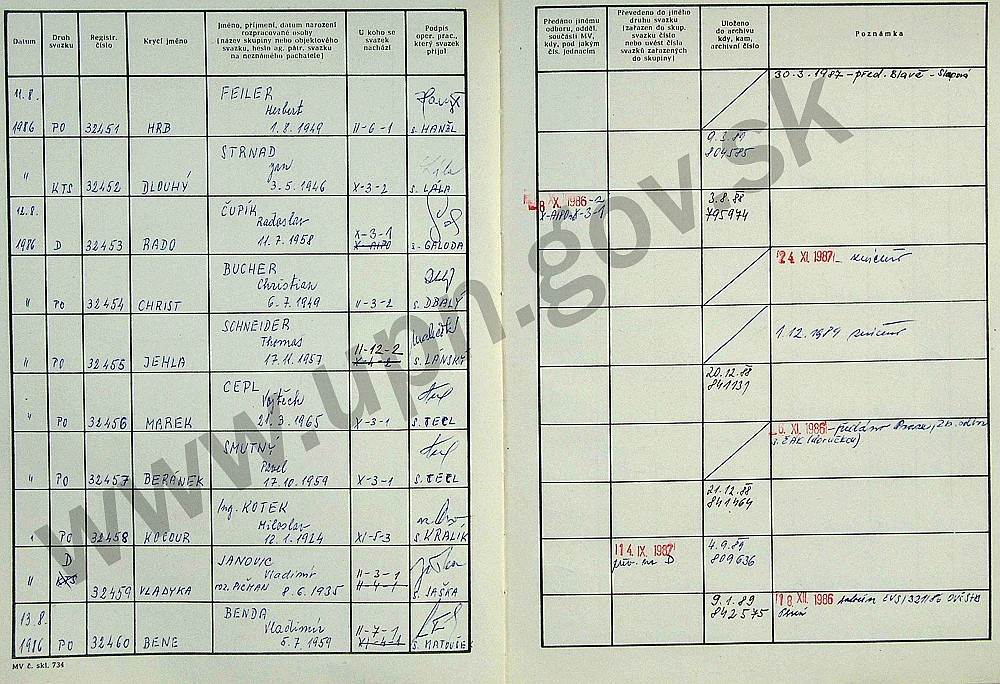 Datum
Druh svazku
Registr. číslo
Krycí jméno
Jméno, příjmení, datum narození
rozpracované osoby
(název skupiny nebo objektového
svazku, heslo ag. pátr. svazku
na neznámého pachatele)
U koho se
svazek
nachází
Podpis
oper. prac.,
který svazek
přijal
Předáno jinému
odboru, odděl.
součásti MV,
kdy, pod jakým
čís. jednacím
Převedeno do jiného
druhu svazku
(zařazen do skup.
svazku číslo
nebo uvést číslo
svazků zařazených
do skupiny)
Uloženo
do archivu
kdy, kam,
archivní číslo
Poznámka
11.8.
FEILER
Herbert
1986 PO 32451 HRB 1. 8. 1949 II-6-1 s. HANZL
30.3.1987 - před. Blavě - Slapová
STRNAD
Jan
" KTS 32452 DLOUHÝ 3. 5. 1946 X-3-2 s. LÁLA
9.3.89
804585
12.8.
ČUPÍK
Radoslav
X-3-1
1986 D 32453 RADO 11. 7. 1958 X-AIPO s. GALODA
8 XI. 1986
3.8.88
795974
BUCHER
Christian
" PO 32454 CHRIST 6. 7. 1949 II-3-2 s. DBALÝ
24. XI. 1987 - zničeno
SCHNEIDER
Thomas
III-12-2
" PO 32455 JEHLA 17. 11. 1957 X-4-2 s. LÁNSKÝ
1.12.1989 zničeno
CEPL
Vojtěch
" PO 32456 MAREK 21. 3. 1965 X-3-1 s. TECL
20.12.88
841131
SMUTNÝ
Pavel
" PO 32457 BERÁNEK 17. 10. 1959 X-3-1 s. TECL
XI. 1986 - předáno Praze, 2b. odbor
Ing. KOTEK
Miloslav
" PO 32458 KOCOUR 12. 1. 1924 XI-5-3 s. KRALÍK
21.12.88
841464
D
JANOVIC
Vladimír
II-3-1
" KTS 32459 VLADYKA roz. PIČMAN 8. 6. 1935 II-4-1 s. JAŠKA
14. IX. 1987
D
4.9.89
809636
13.8.
BENDA
Vladimír
II-7-1
1986 PO 32460 BENE 5. 7. 1959 XI-4-1 s. MATOUŠEK
9.1.89
842575
18. XII. 1986
MV č. skl. 734
www.upn.gov.sk